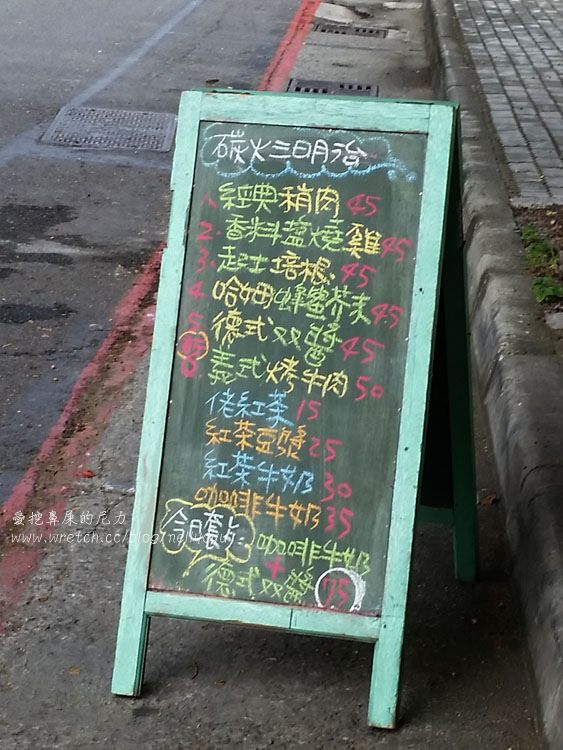 碳火三明治
1. 經典豬肉 45
2. 香料鹽燒雞 45
3. 起士培根 45
4. 哈姆蜂蜜芥末 45
5. 德式双醬 45
義式烤牛肉 50
佬紅茶 15
紅茶豆漿 25
紅茶牛奶 30
咖啡牛奶 35
今日套上
咖啡牛奶
+
德式双醬 75
愛挖鼻屎的尼力